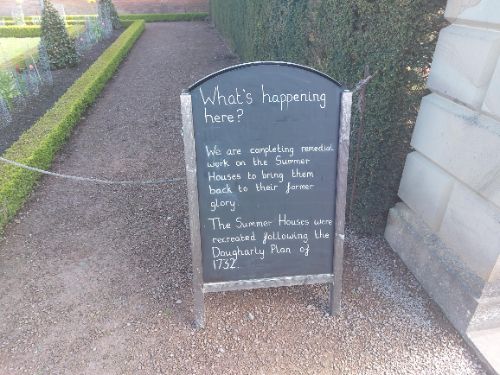 What's happening
here?
We are completing remedial
work on the Summer
Houses to bring them
back to their former
glory.
The Summer Houses were
recreated following the
Dougharty Plan of
1732.